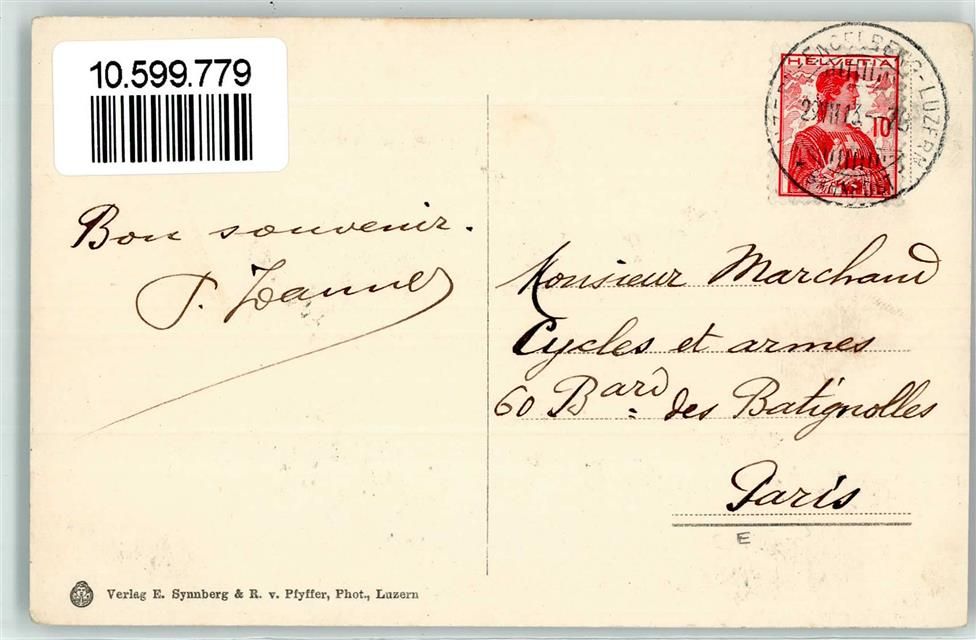 10.599.779
HELVETIA
10
ENGELBERG-LUZERN
Bon souvenir.
Monsieur Marchand
Cycles et armes
60 Bard des Batignolles
Paris
E
Verlag E. Synnberg & R. v. Pfyffer, Phot., Luzern